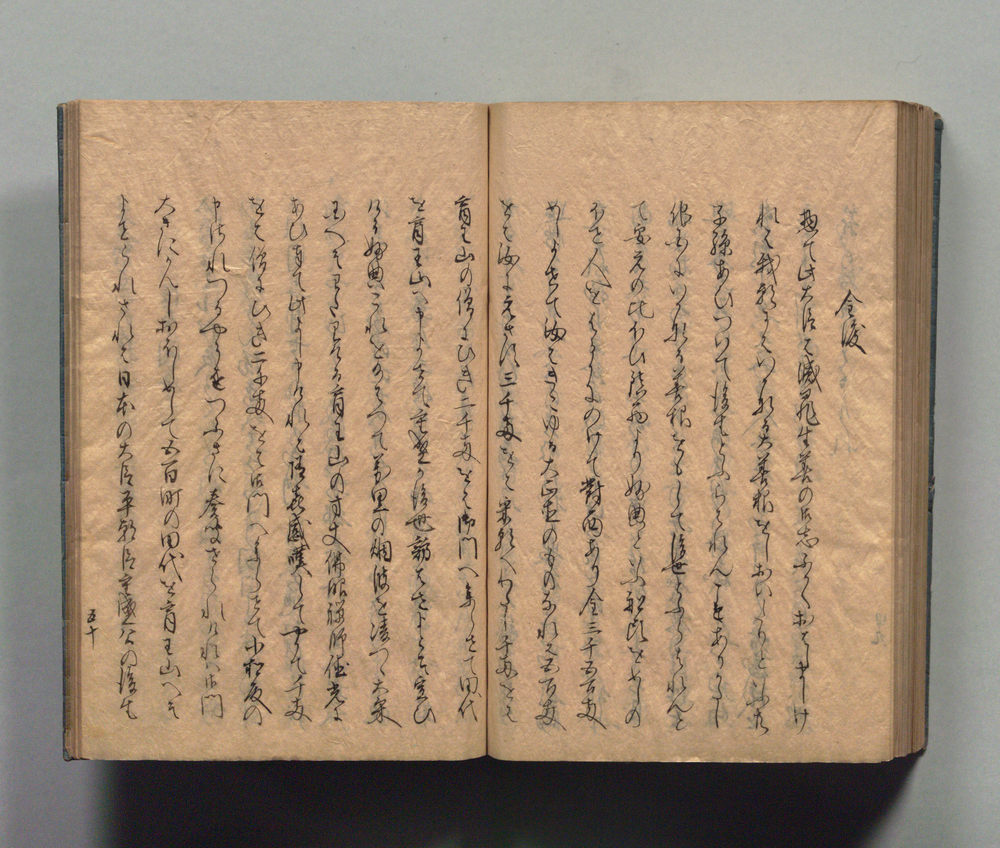 金渡
惣て此大臣は滅罪生善の御志ふかくおはしけ
れは我朝にはいかなる大善根をしおいたりとも
子孫あひつゝいて後世とふらはれん事ありかたし
他国にいかなる善根をもして後世とふらはれんと
て安元の比ほひ鎮西より妙典と云船頭をめしの
ほせ人をはるかにのけて対面あり金三千五百両
めしよせて汝はきこゆる大正直のものなれは五百両
をは汝にえさす三千両をは宋朝へわたし千両をは
育王山の僧にひき二千両をは御門へまいらせて田代
を育王山へ申よせて重盛か後世訪はせよとそ宣ひ
ける妙典これを給はつて万里の烟波を凌つゝ大宋
国へそわたりける育王山の方丈仏照禅師徳光に
あひ奉て此よし申けれは随喜感嘆してやかて千両
をは僧にひき二千両をは御門へまいらせて小松殿の
申されつるやうをつふさに奏聞せられけれは御門
大きにかんしおほしめして五百町の田代を育王山へそ
よせられけるされは日本の大臣平朝臣重盛公の後生
五十